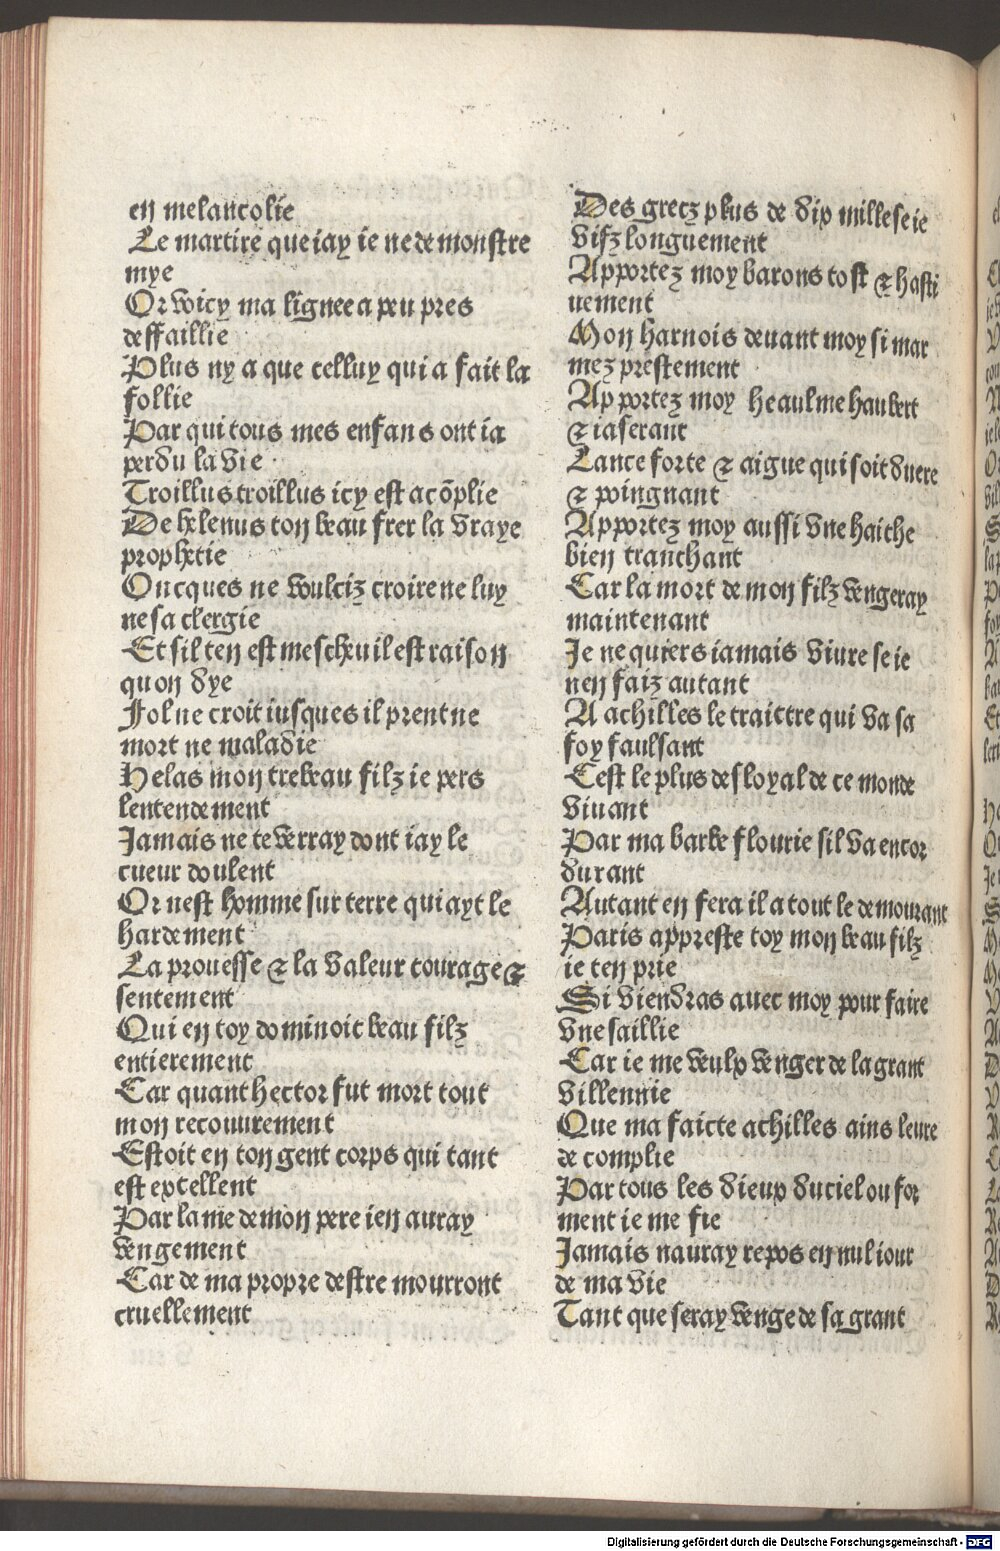 en melancolie
Le martire que iay ie ne demonstre
mye
Or voicy ma lignee a peu pres
deffaillie
Plus ny a que celluy qui a fait la
follie
Par qui tous mes enfans ont ia
perdu la vie
Troillus troillus icy est acõplie
De helenus ton beau frer la vraye
prophetie
Oncques ne voulciz croire ne luy
ne sa clergie
Et sil ten est mescheu il est raison
quon dye
Fol ne croit iusques il prent ne
mort ne maladie
Helas mon trebeau filz ie pers
lentendement
Jamais ne te verray dont iay le
cueur doulent
Or nest homme sur terre qui ayt le
hardement
La prouesse & la valeur courage &
sentement
Qui en toy dominoit beau filz
entierement
Car quant hector fut mort tout
mon recouurement
Estoit en ton gent corps qui tant
est excellent
Par lame de mon pere ien auray
vengement
Car de ma propre destre mourront
cruellement
Des grecz plus de dix mille se ie
vifz longuement
Apportez moy barons tost & hasti
uement
Mon harnois deuant moy si mar
mez prestement
Apportez moy heaulme haubert
& iaserant
Lance forte & aigue qui soit duere
& poingnant
Apportez moy aussi vne haiche
bien tranchant
Car la mort de mon filz vengeray
maintenant
Je ne quiers iamais viure se ie
nen faiz autant
A achilles le traittre qui va sa
foy faulsant
Cest le plus desloyal de ce monde
viuant
Par ma barbe flourie sil va encor
durant
Autant en fera il a tout le demourant
Paris appreste toy mon beau filz
ie ten prie
Si viendras auec moy pour faire
vne saillie
Car ie me veulx venger de la grant
villennie
Que ma faicte achilles ains leure
de complie
Par tous les dieux du ciel ou for
ment ie me fie
Jamais nauray repos en nul iour
de ma vie
Tant que seray venge de sa grant
Digitalisierung gefördert durch die Deutsche Forschungsgemeinschaft - DFG